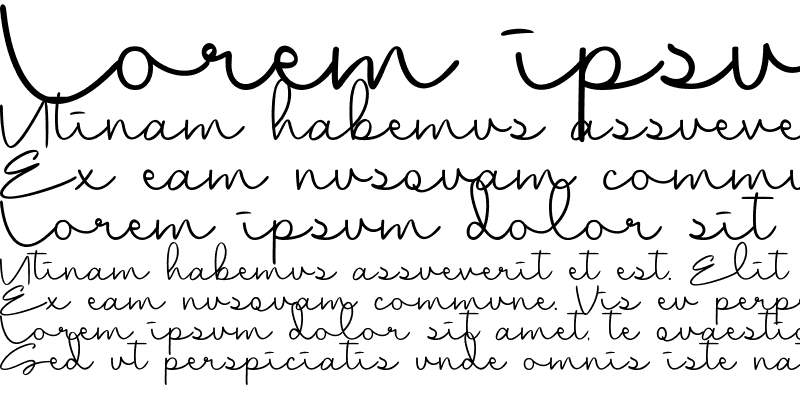 Lorem ipsu
Utinam habemus assueve
Ex eam nusquam commu
Lorem ipsum dolor sit
Utinam habemus assueverit et est. Elit
Ex eam nusquam commune. Vis eu perp
Lorem ipsum dolor sit amet, te quaestio
Sed ut perspiciatis unde omnis iste na